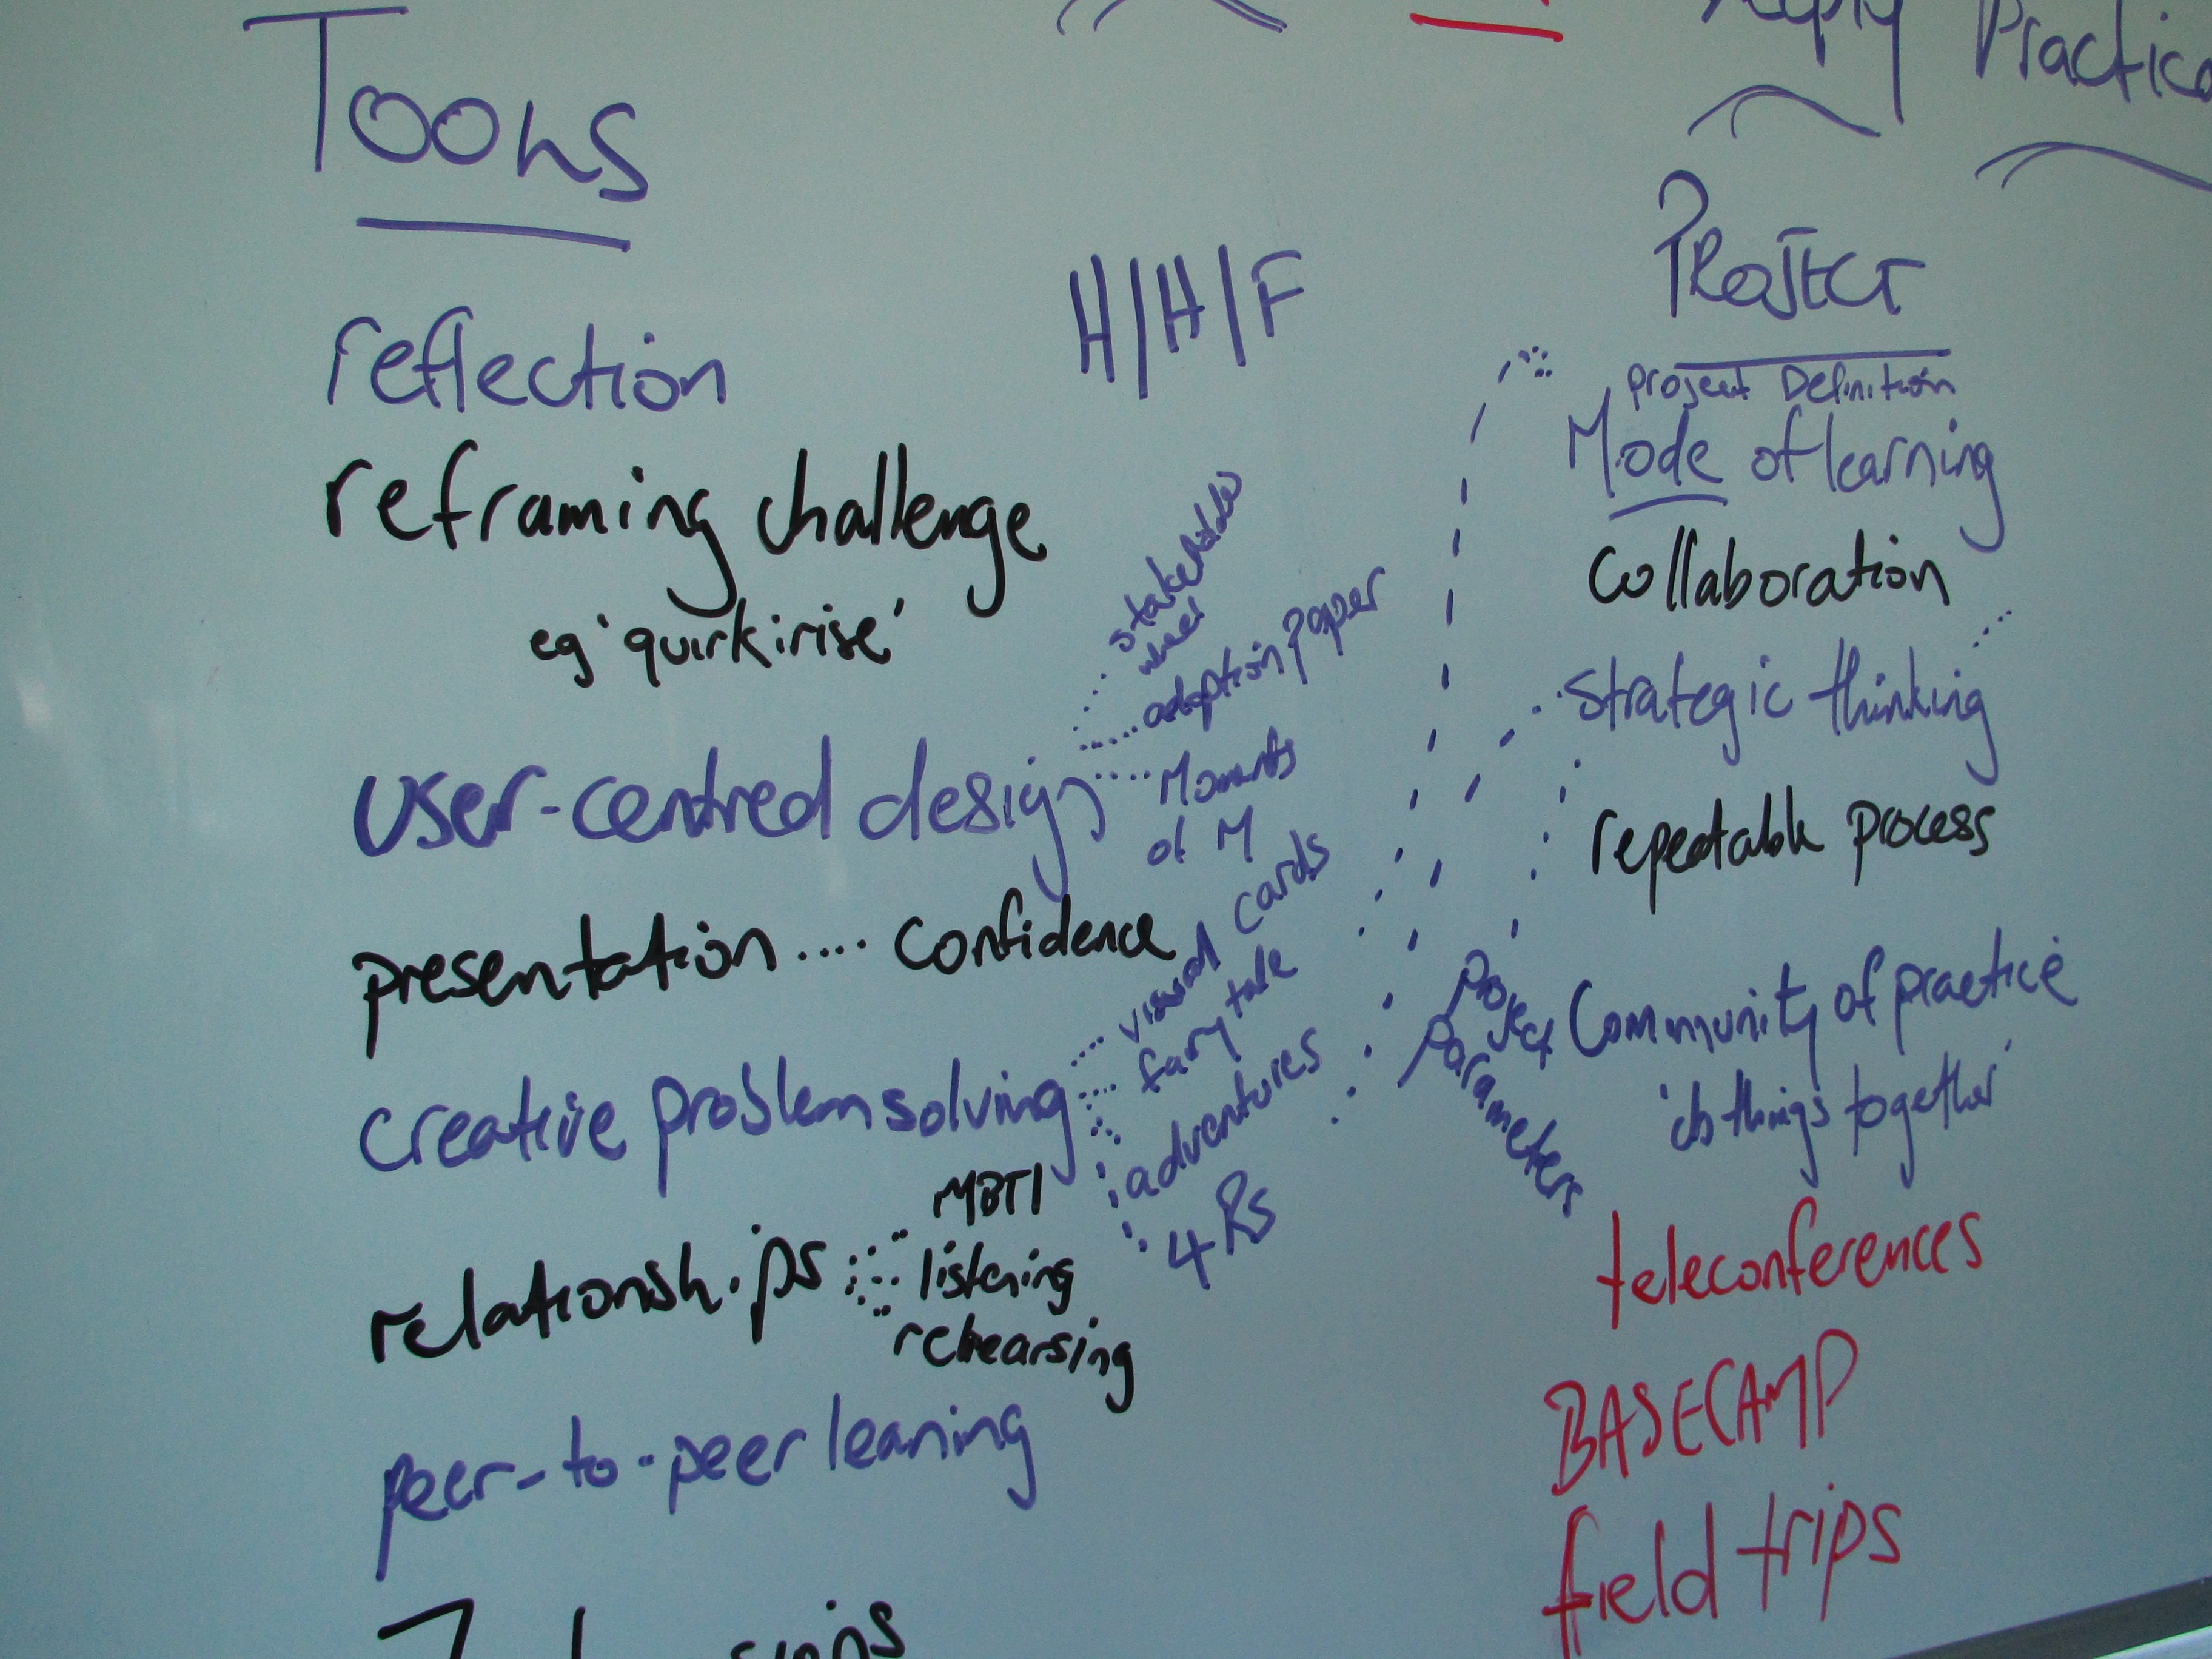 Practice
Tools
H/H/F
reflection
reframing challenge
eg 'quirkirise'
user-centred design
stakeholder
wheel
adoption paper
Moments
of M
presentation .... confidence
creative problem solving
visual cards
fairy tale
adventures
4 Rs
relationships
MBTI
listening
rehearsing
peer-to-peer leaning
PROJECT
Project Definition
Mode of learning
collaboration
strategic thinking
repeatable process
Project
Parameters
Community of practice
'do things together'
teleconferences
BASECAMP
field trips